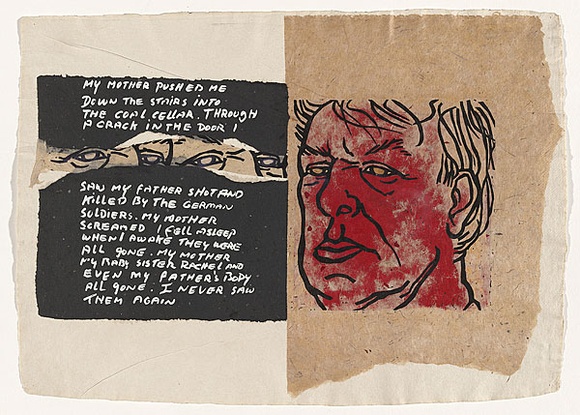 MY MOTHER PUSHED ME
DOWN THE STAIRS INTO
THE COAL CELLAR. THROUGH
A CRACK IN THE DOOR I
SAW MY FATHER SHOT AND
KILLED BY THE GERMAN
SOLDIERS. MY MOTHER
SCREAMED I FELL ASLEEP
WHEN I AWOKE THEY WERE
ALL GONE. MY MOTHER
MY BABY SISTER RACHEL AND
EVEN MY FATHER'S BODY
ALL GONE. I NEVER SAW
THEM AGAIN